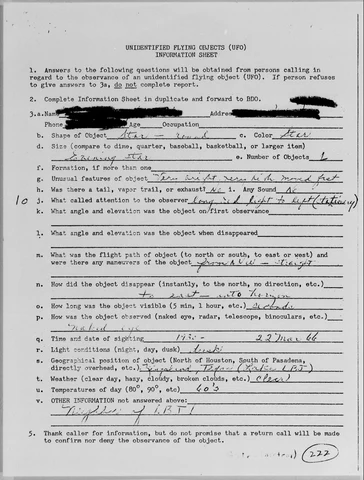 UNIDENTIFIED FLYING OBJECTS (UFO)
INFORMATION SHEET
1. Answers to the following questions will be obtained from persons calling in
regard to the observance of an unidentified flying object (UFO). If person refuses
to give answers to 3a, do not complete report.
2. Complete Information Sheet in duplicate and forward to BDO.
3.a. Name Address
Phone Age Occupation
b. Shape of Object Star - round c. Color Star
d. Size (compare to dime, quarter, baseball, basketball, or larger item)
Evening star e. Number of Objects 1
f. Formation, if more than one
g. Unusual features of object Very bright, very high, moved fast
h. Was there a tail, vapor trail, or exhaust? No i. Any Sound No
10 j. What called attention to the observer
k. What angle and elevation was the object on first observance
l. What angle and elevation was the object when disappeared
m. What was the flight path of object (to north or south, to east or west) and
were there any maneuvers of the object from NW - straight
n. How did the object disappear (instantly, to the north, no direction, etc.)
to east - into horizon
o. How long was the object visible (5 min, 1 hour, etc.) seconds
p. How was the object observed (naked eye, radar, telescope, binoculars, etc.)
Naked eye
q. Time and date of sighting 22 Mar 66
r. Light conditions (night, day, dusk) dusk
s. Geographical position of object (North of Houston, South of Pasadena,
directly overhead, etc.) Texas (Lake LBJ)
t. Weather (clear day, hazy, cloudy, broken clouds, etc.) clear
u. Temperatures of day (80°, 90°, etc) 60's
v. OTHER INFORMATION not answered above:
of LBJ!
5. Thank caller for information, but do not promise that a return call will be made
to confirm nor deny the observance of the object.
222